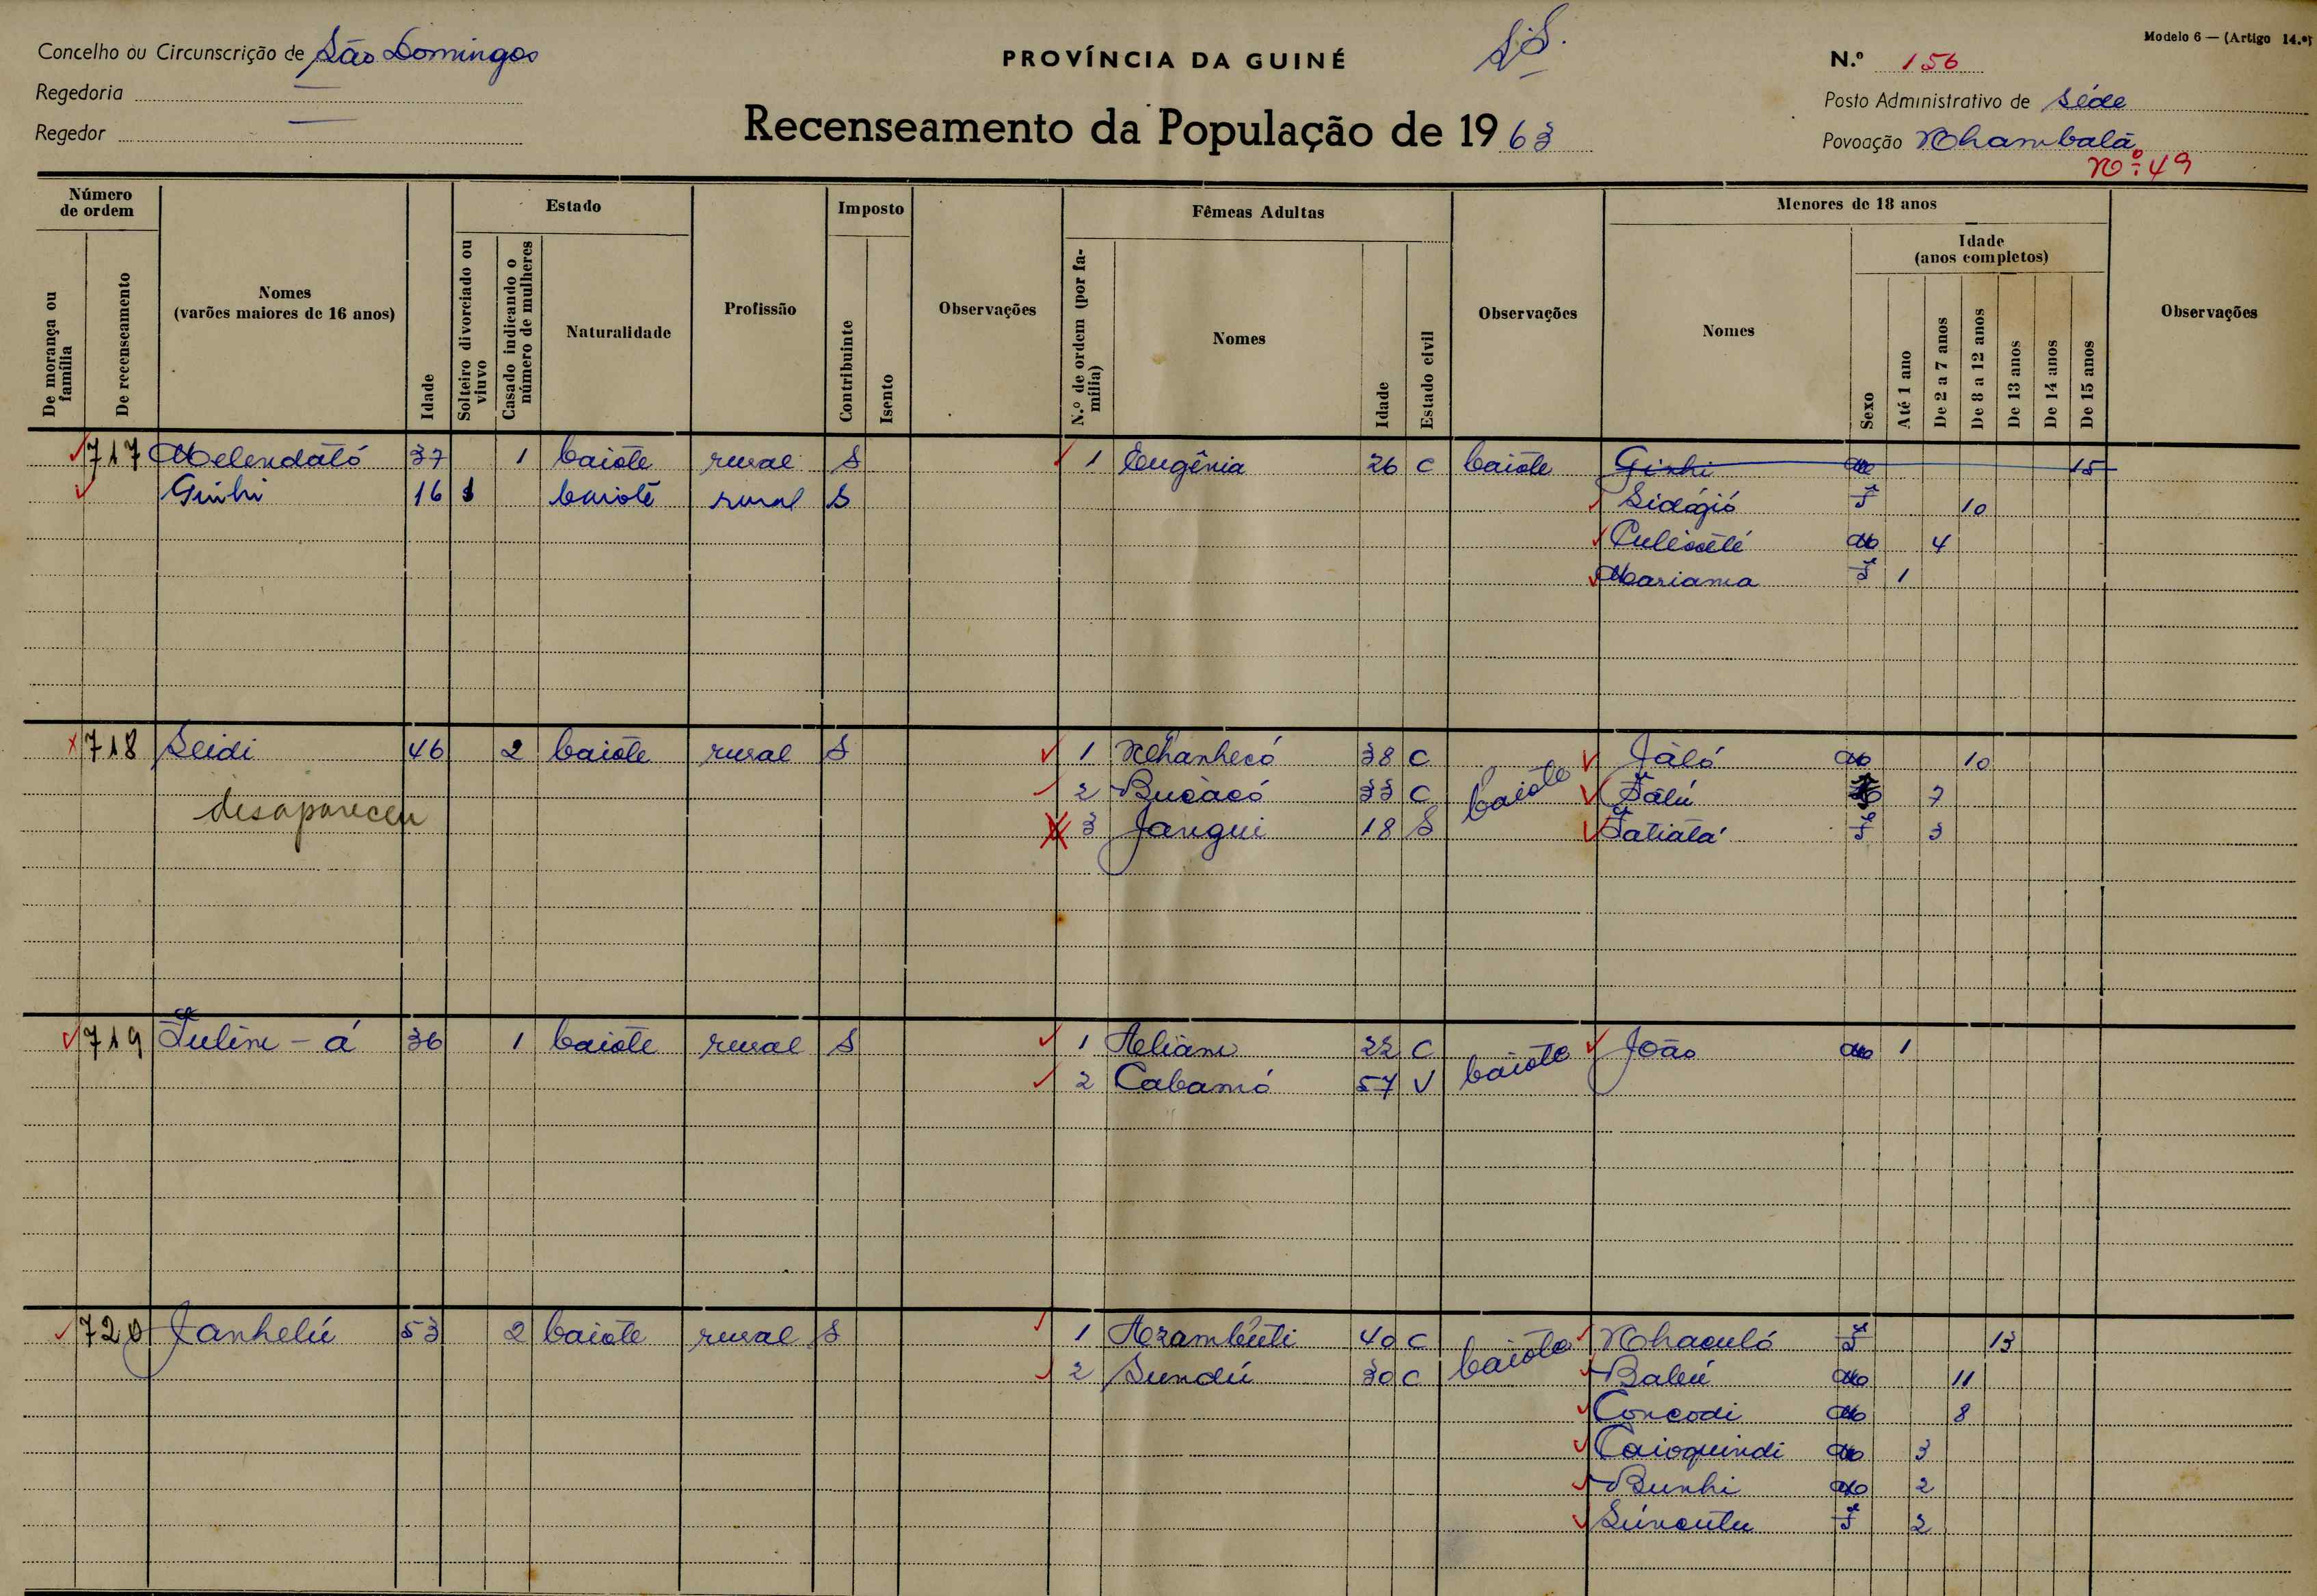 Modelo 6 — (Artigo 14.º)
Concelho ou Circunscrição de São Domingos
PROVÍNCIA DA GUINÉ
N.º 156
Regedoria
Posto Administrativo de Séde
Regedor
Recenseamento da População de 1963
Povoação Nhambalã
Nº 49
Número de ordem
De morança ou família
De recenseamento
Nomes (varões maiores de 16 anos)
Idade
Estado
Solteiro divorciado ou viuvo
Casado indicando o número de mulheres
Naturalidade
Profissão
Imposto
Contribuinte
Isento
Observações
Fêmeas Adultas
N.º de ordem (por família)
Nomes
Idade
Estado civil
Observações
Menores de 18 anos
Nomes
Sexo
Idade (anos completos)
Até 1 ano
De 2 a 7 anos
De 8 a 12 anos
De 13 anos
De 14 anos
De 15 anos
Observações
717 Melendátó 37 1 baiote rural S 1 Eugênia 26 C baiote Ginhi M 15
Guinhi 16 S baiote rural S Sidógió F 10
M 4
Mariama F 1
718 Seidi 46 2 baiote rural S 1 Nhanhecó 38 C Jáló M 10
desapareceu 2 Bucácó 33 C baiote Fálú 7
3 Jangui 18 S Fatiatá F 3
719 36 1 baiote rural S 1 Aliam 22 C baiote João M 1
2 Cabamó 57 V
720 Janhelú 53 2 baiote rural S 1 Azambúti 40 C baiote Nhaculó F 13
2 Sundú 30 C Baleú M 11
Concodi M 8
Caioquindi M 3
Bunhi M 2
Súncutu F 2